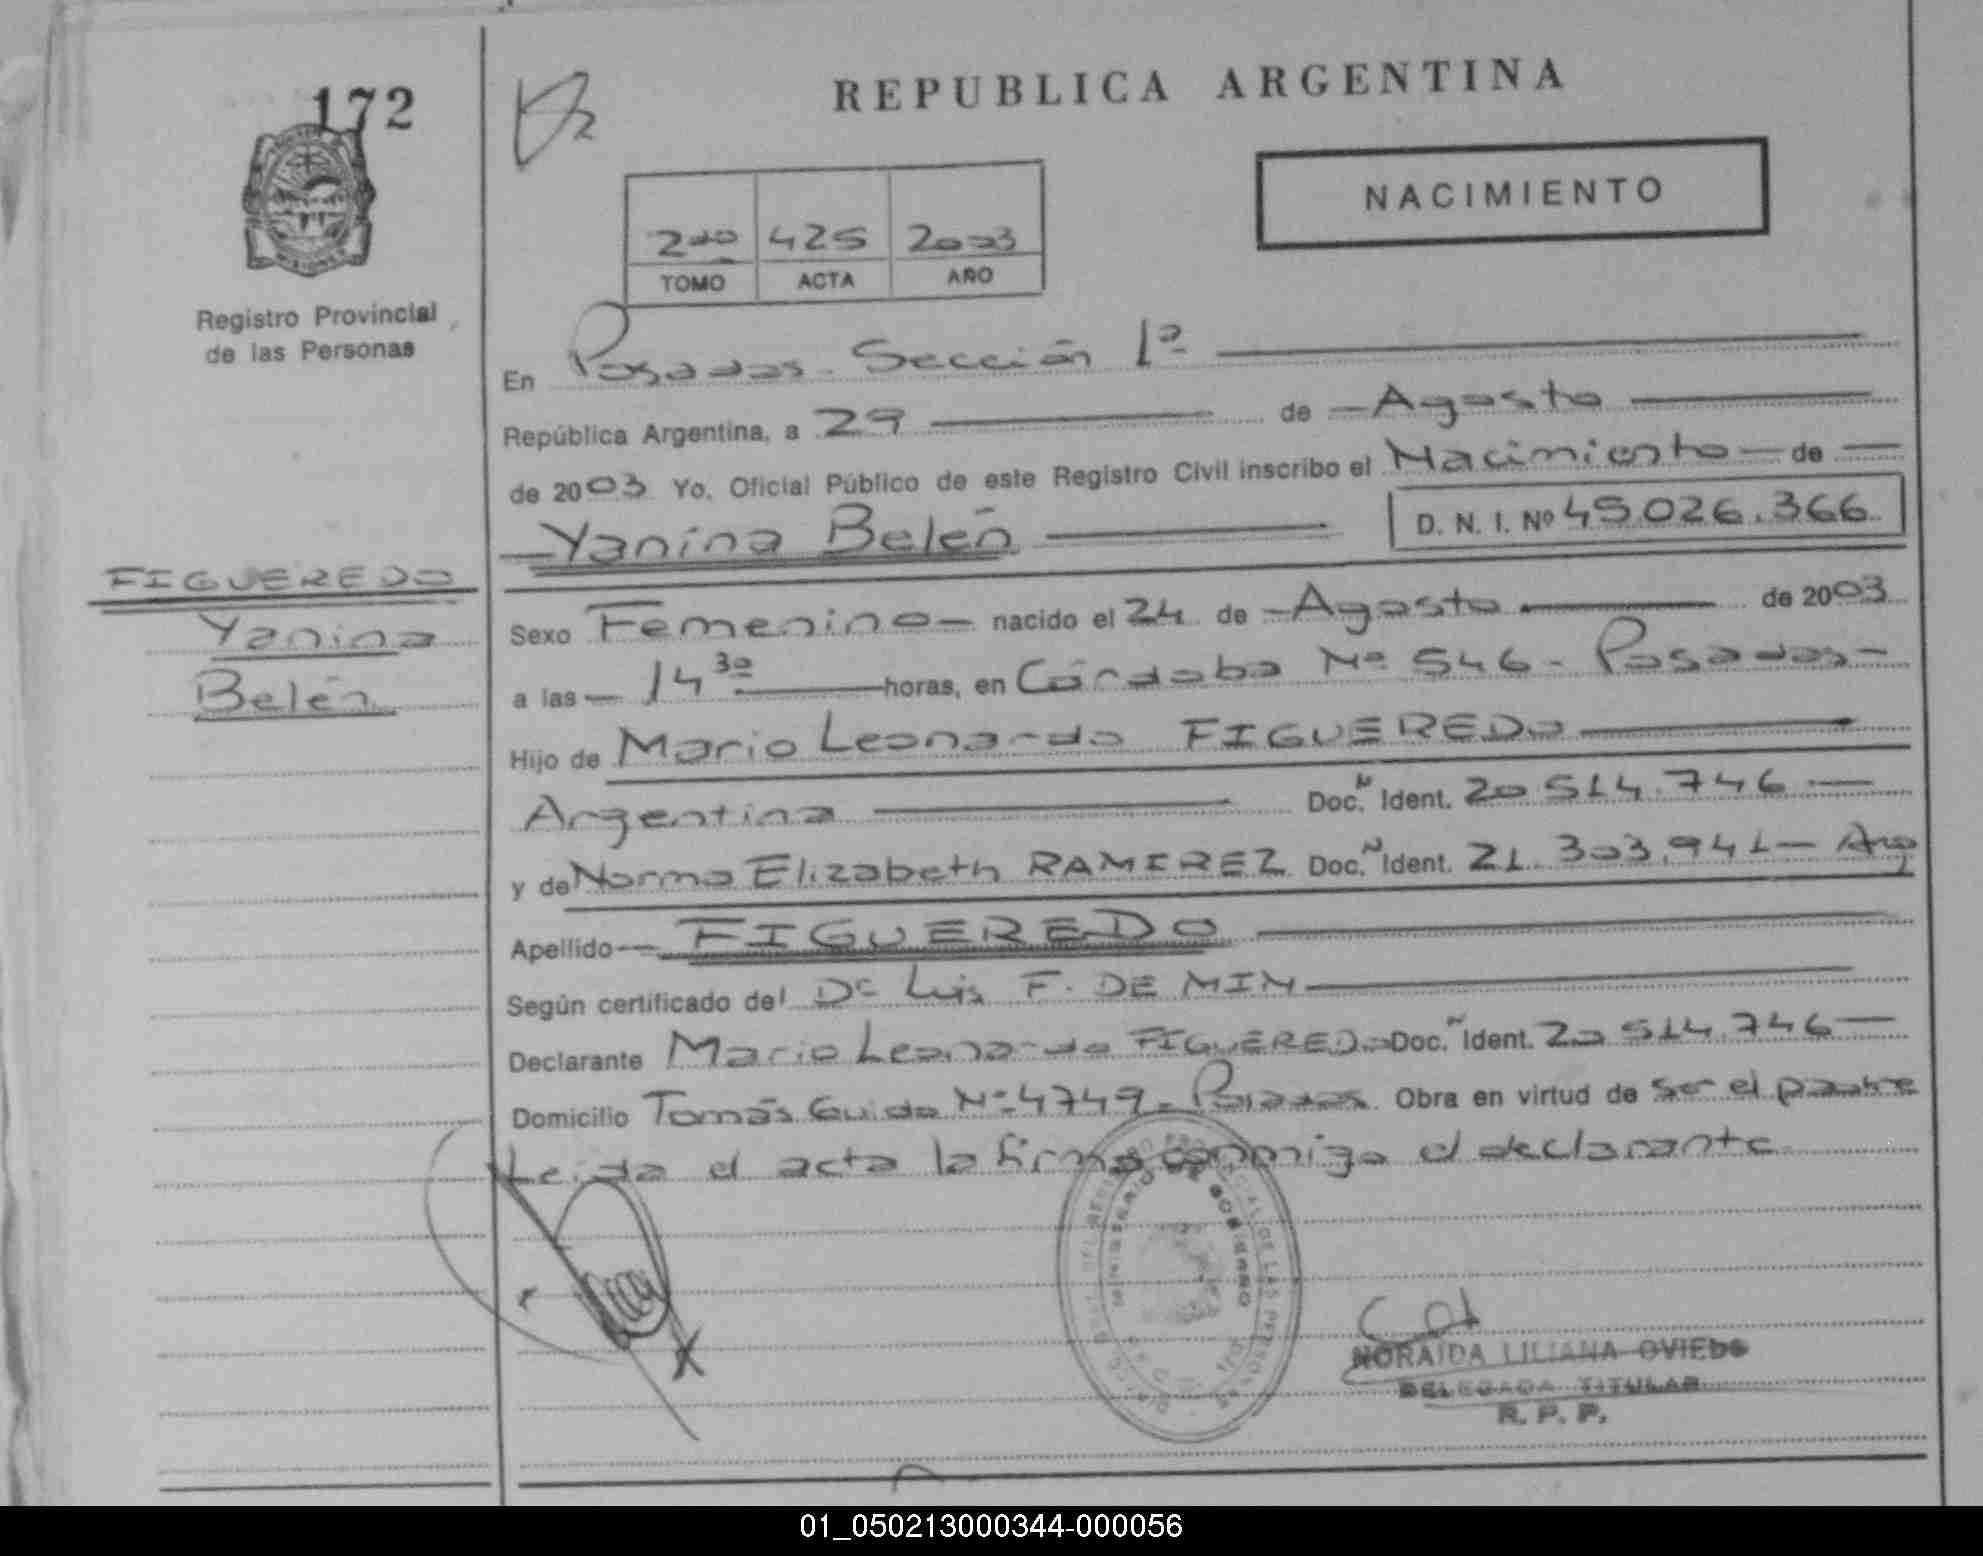 172
REPUBLICA ARGENTINA
NACIMIENTO
2do 425 2003
TOMO ACTA AÑO
Registro Provincial
de las Personas
En Posadas - Sección 1ª
República Argentina, a 29 de Agosto
de 2003 Yo, Oficial Público de este Registro Civil inscribo el Nacimiento de
Yanina Belén D. N. I. Nº 45.026.366
FIGUEREDO
Yanina
Belén
Sexo Femenino nacido el 24 de Agosto de 2003
a las 14 30 horas, en Córdoba Nº 546 - Posadas
Hijo de Mario Leonardo FIGUEREDO
Argentina Doc. N Ident. 20 514.746
y de Norma Elizabeth RAMIREZ Doc. N Ident. 21.303.941 - Arg
Apellido FIGUEREDO
Según certificado del Dr Luis F. DE MIN
Declarante Mario Leonardo FIGUEREDO Doc. N Ident. 20 514.746
Domicilio Tomás Guido Nº 4749 - Posadas Obra en virtud de ser el padre
Leida el acta la firma conmigo el declarante
MINISTERIO DE GOBIERNO
NORAIDA LILIANA OVIEDO
DELEGADA TITULAR
R. P. P.
01_050213000344-000056